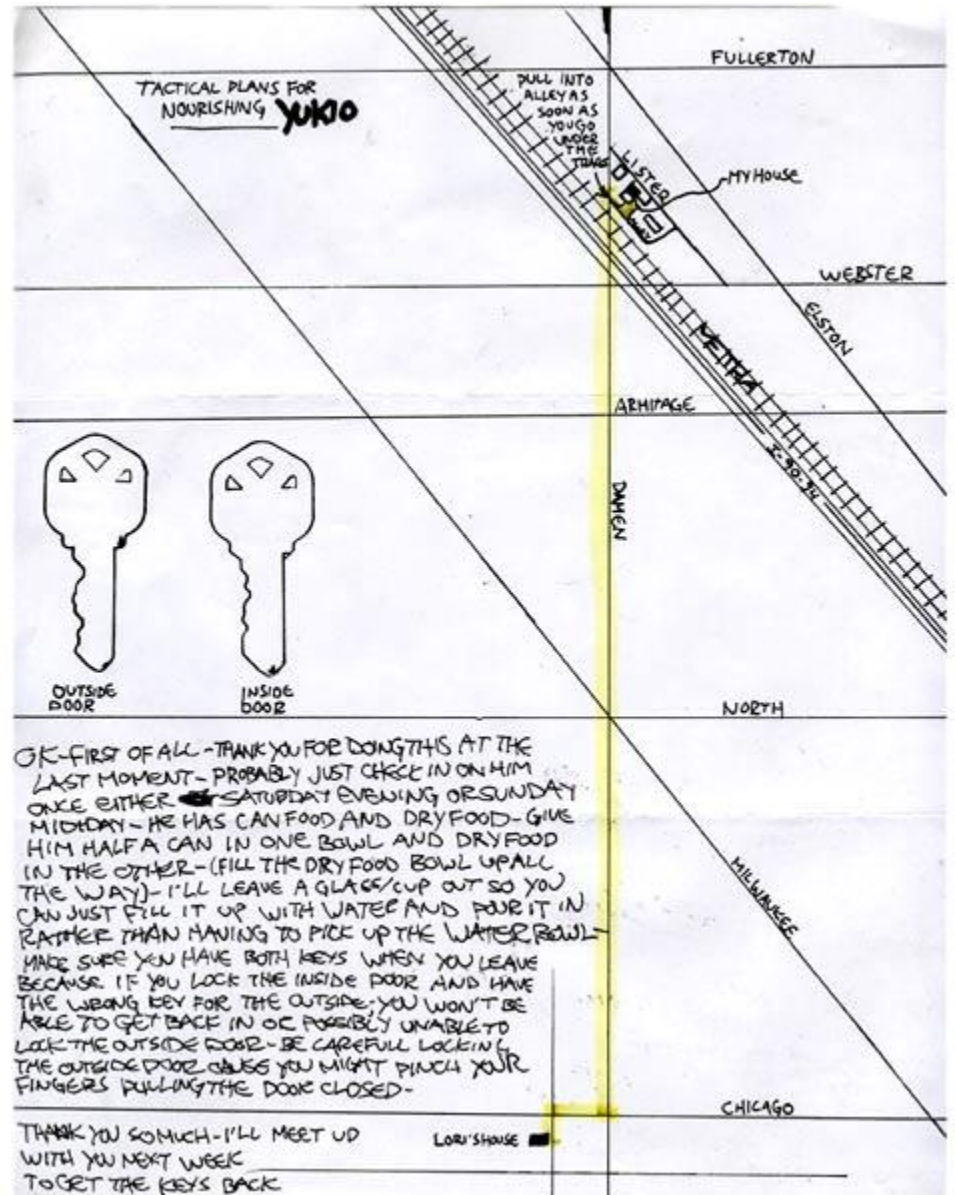 FULLERTON
TACTICAL PLANS FOR
NOURISHING YUKIO
PULL INTO
ALLEY AS
SOON AS
YOU GO
UNDER
THE
TRACKS
LISTER
MY HOUSE
WEBSTER
ELSTON
METRA
ARMITAGE
I-90-94
DAMEN
OUTSIDE
DOOR
INSIDE
DOOR
NORTH
OK-FIRST OF ALL-THANK YOU FOR DOING THIS AT THE
LAST MOMENT-PROBABLY JUST CHECK IN ON HIM
ONCE EITHER SATURDAY EVENING OR SUNDAY
MIDIDAY-HE HAS CAN FOOD AND DRY FOOD-GIVE
HIM HALF A CAN IN ONE BOWL AND DRY FOOD
IN THE OTHER-(FILL THE DRY FOOD BOWL UP ALL
THE WAY)-I'LL LEAVE A GLASS/CUP OUT SO YOU
CAN JUST FILL IT UP WITH WATER AND POUR IT IN
RATHER THAN HAVING TO PICK UP THE WATER BOWL-
MAKE SURE YOU HAVE BOTH KEYS WHEN YOU LEAVE
BECAUSE IF YOU LOCK THE INSIDE DOOR AND HAVE
THE WRONG KEY FOR THE OUTSIDE, YOU WON'T BE
ABLE TO GET BACK IN OR POSSIBLY UNABLE TO
LOCK THE OUTSIDE DOOR-BE CAREFULL LOCKING
THE OUTSIDE DOOR CAUSE YOU MIGHT PINCH YOUR
FINGERS PULLING THE DOOR CLOSED-
MILWAUKEE
CHICAGO
LORI'S HOUSE
THANK YOU SO MUCH-I'LL MEET UP
WITH YOU NEXT WEEK
TO GET THE KEYS BACK